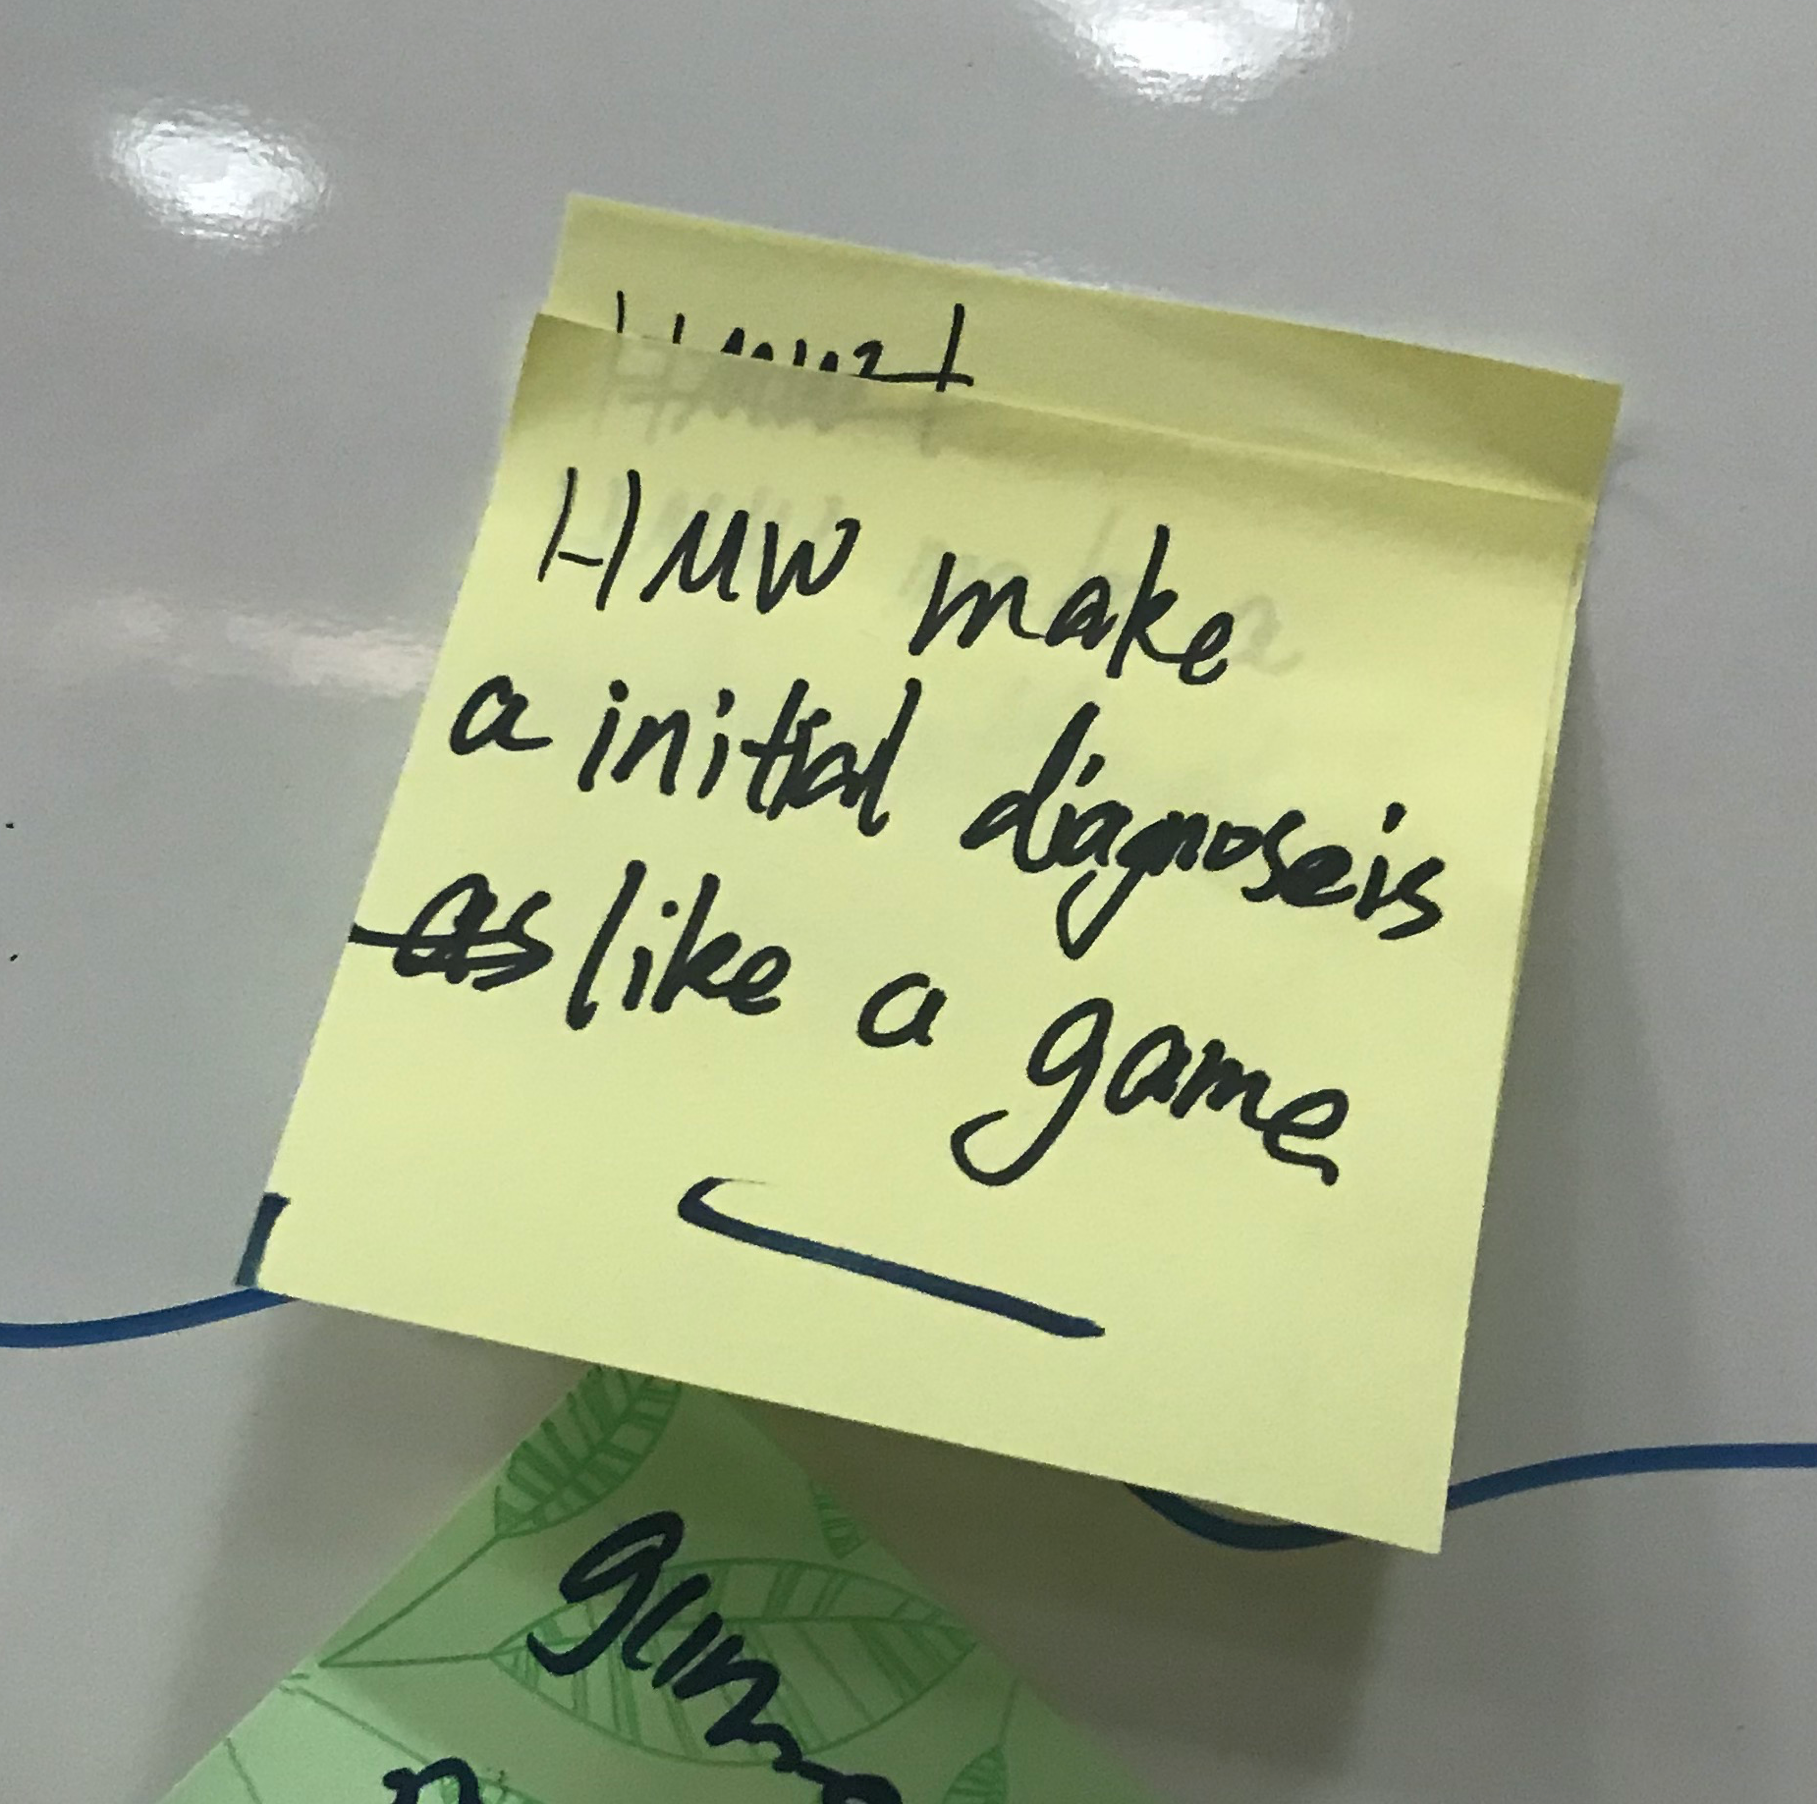 HMW make
a initial diagnoseis
as like a game